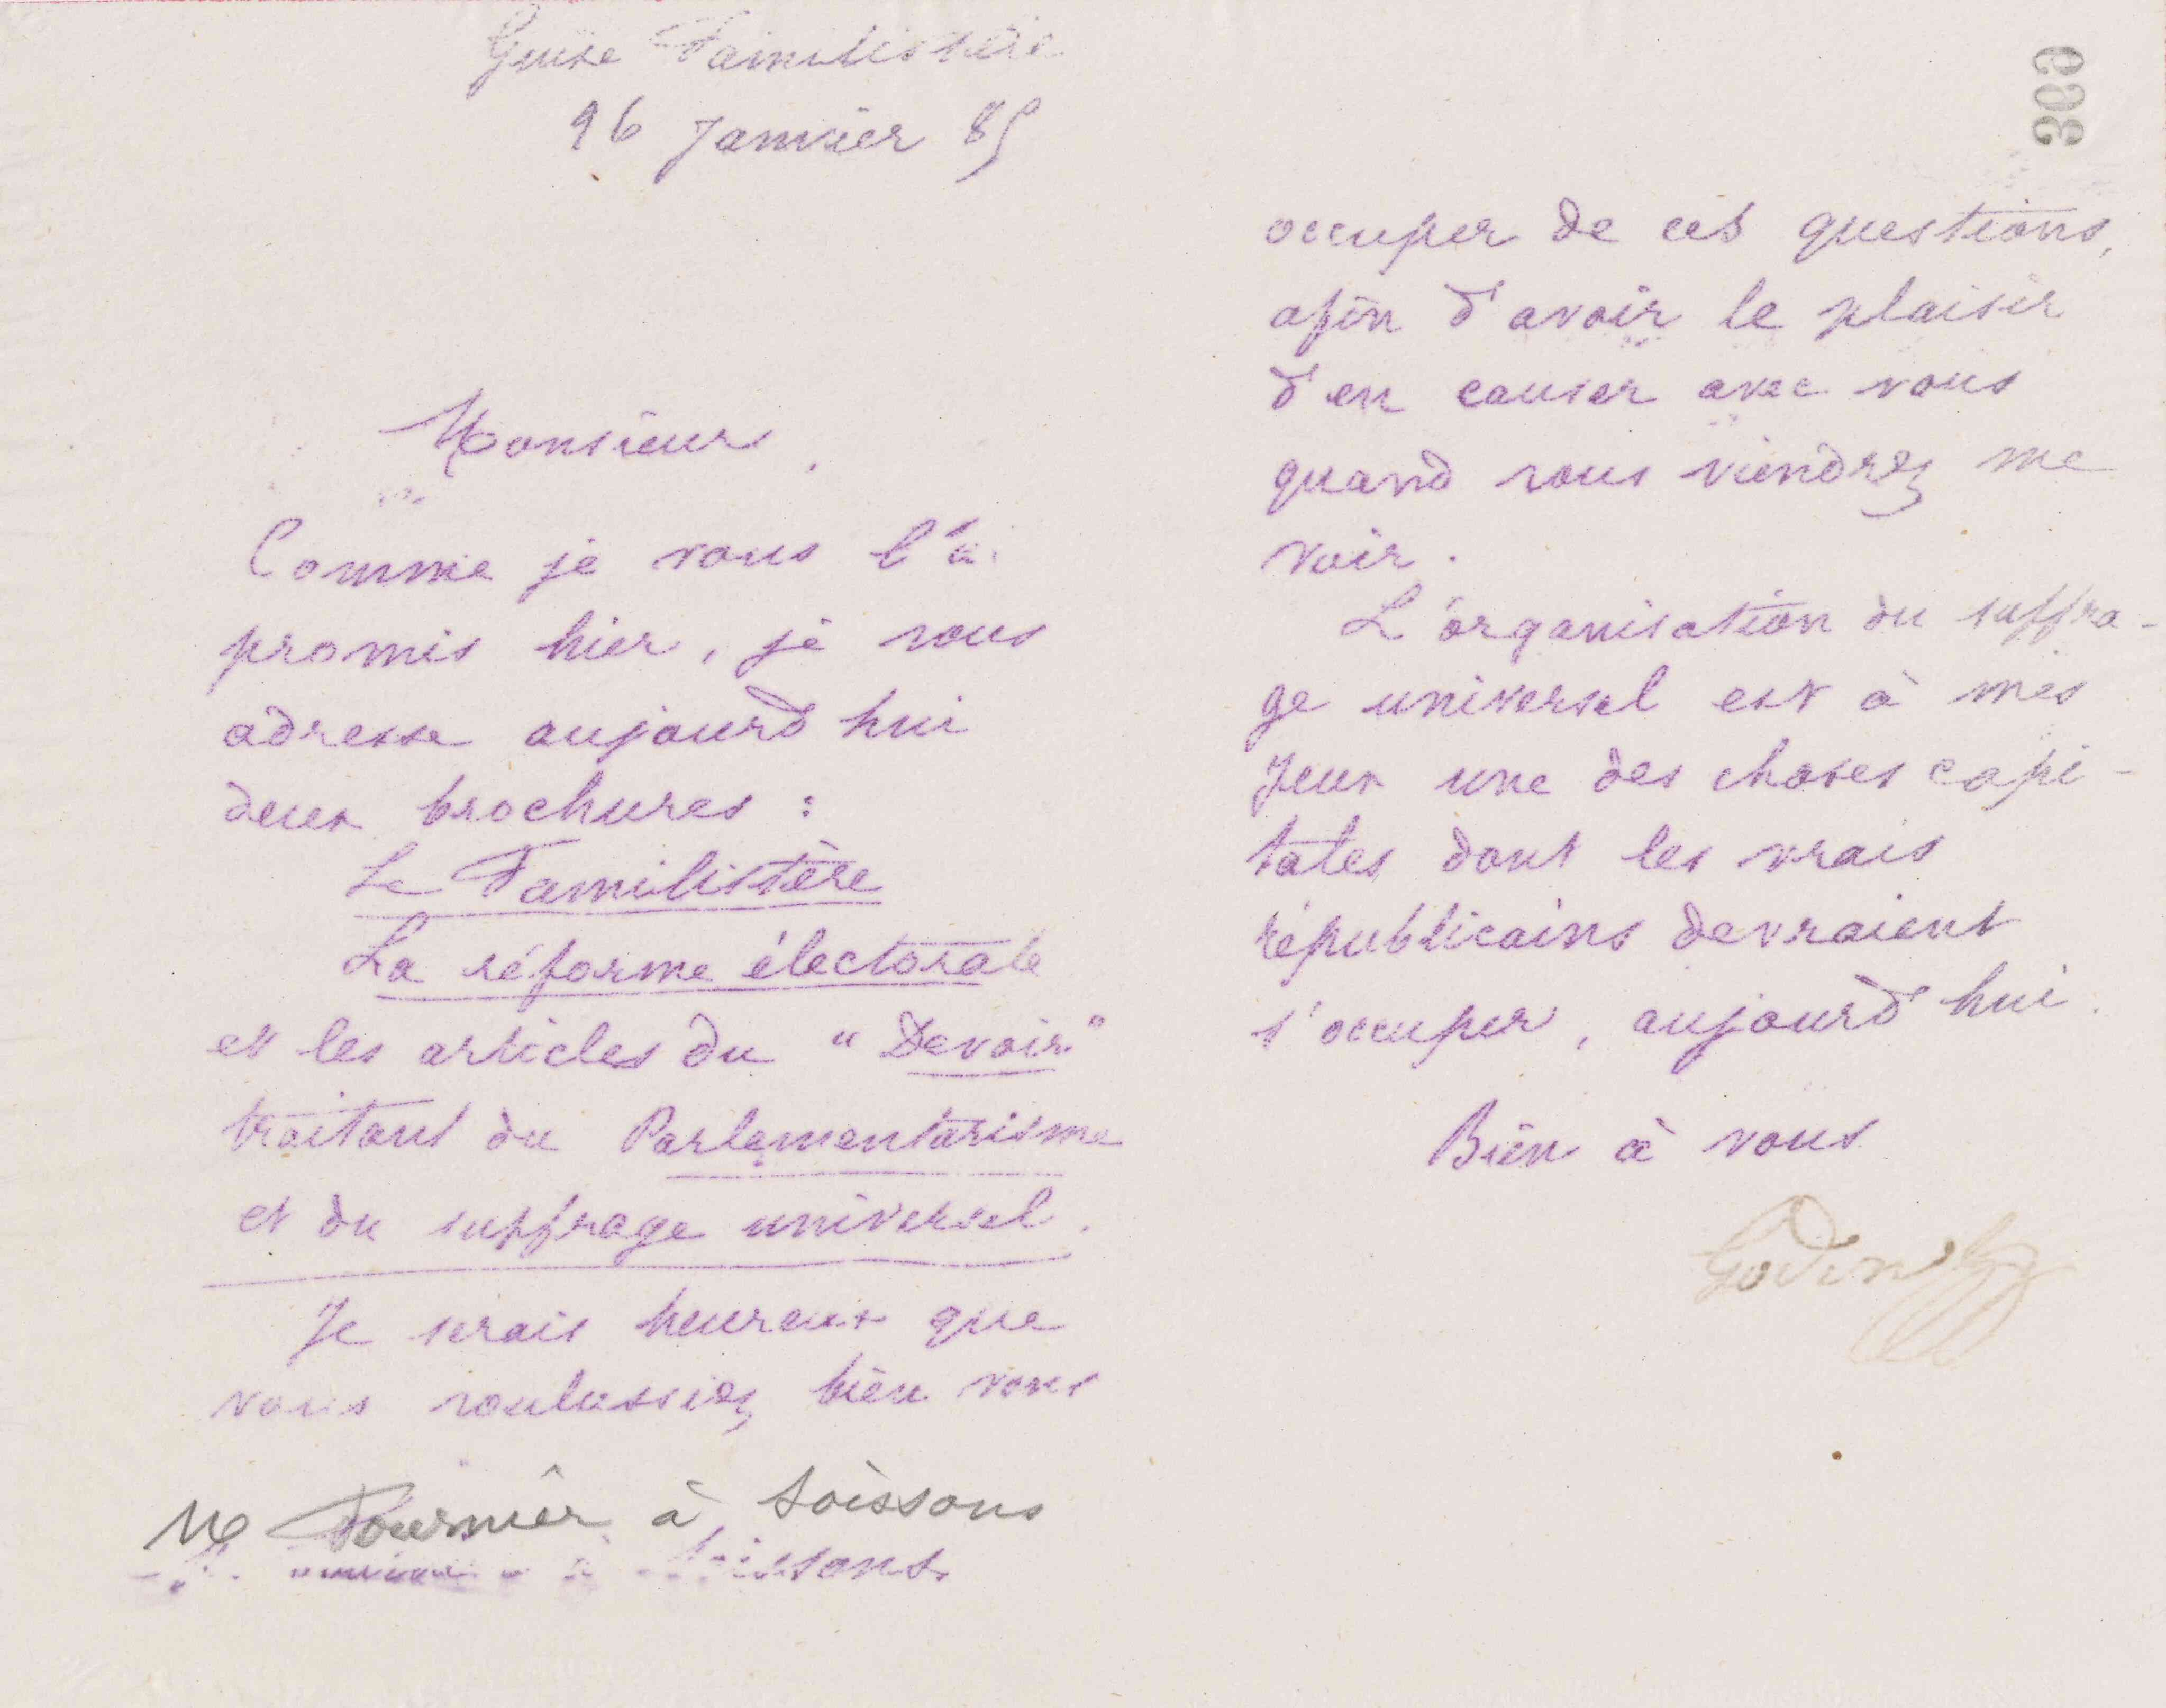 Guise Familistère
26 Janvier 85
Monsieur,
Comme je vous l'ai
promis hier, je vous
adresse aujourd'hui
deux brochures :
Le Familistère
La réforme électorale
et les articles du "Devoir"
traitant du Parlementarisme
et du suffrage universel.
Je serais heureux que
vous voulussiez bien vous
Mr Fournier à Soissons
à Soissons
309
occuper de ces questions,
afin d'avoir le plaisir
d'en causer avec vous
quand vous viendrez me
voir.
L'organisation du suffra-
ge universel est à mes
yeux une des choses capi-
tales dont les vrais
républicains devraient
s'occuper, aujourd'hui.
Bien à vous
Godin